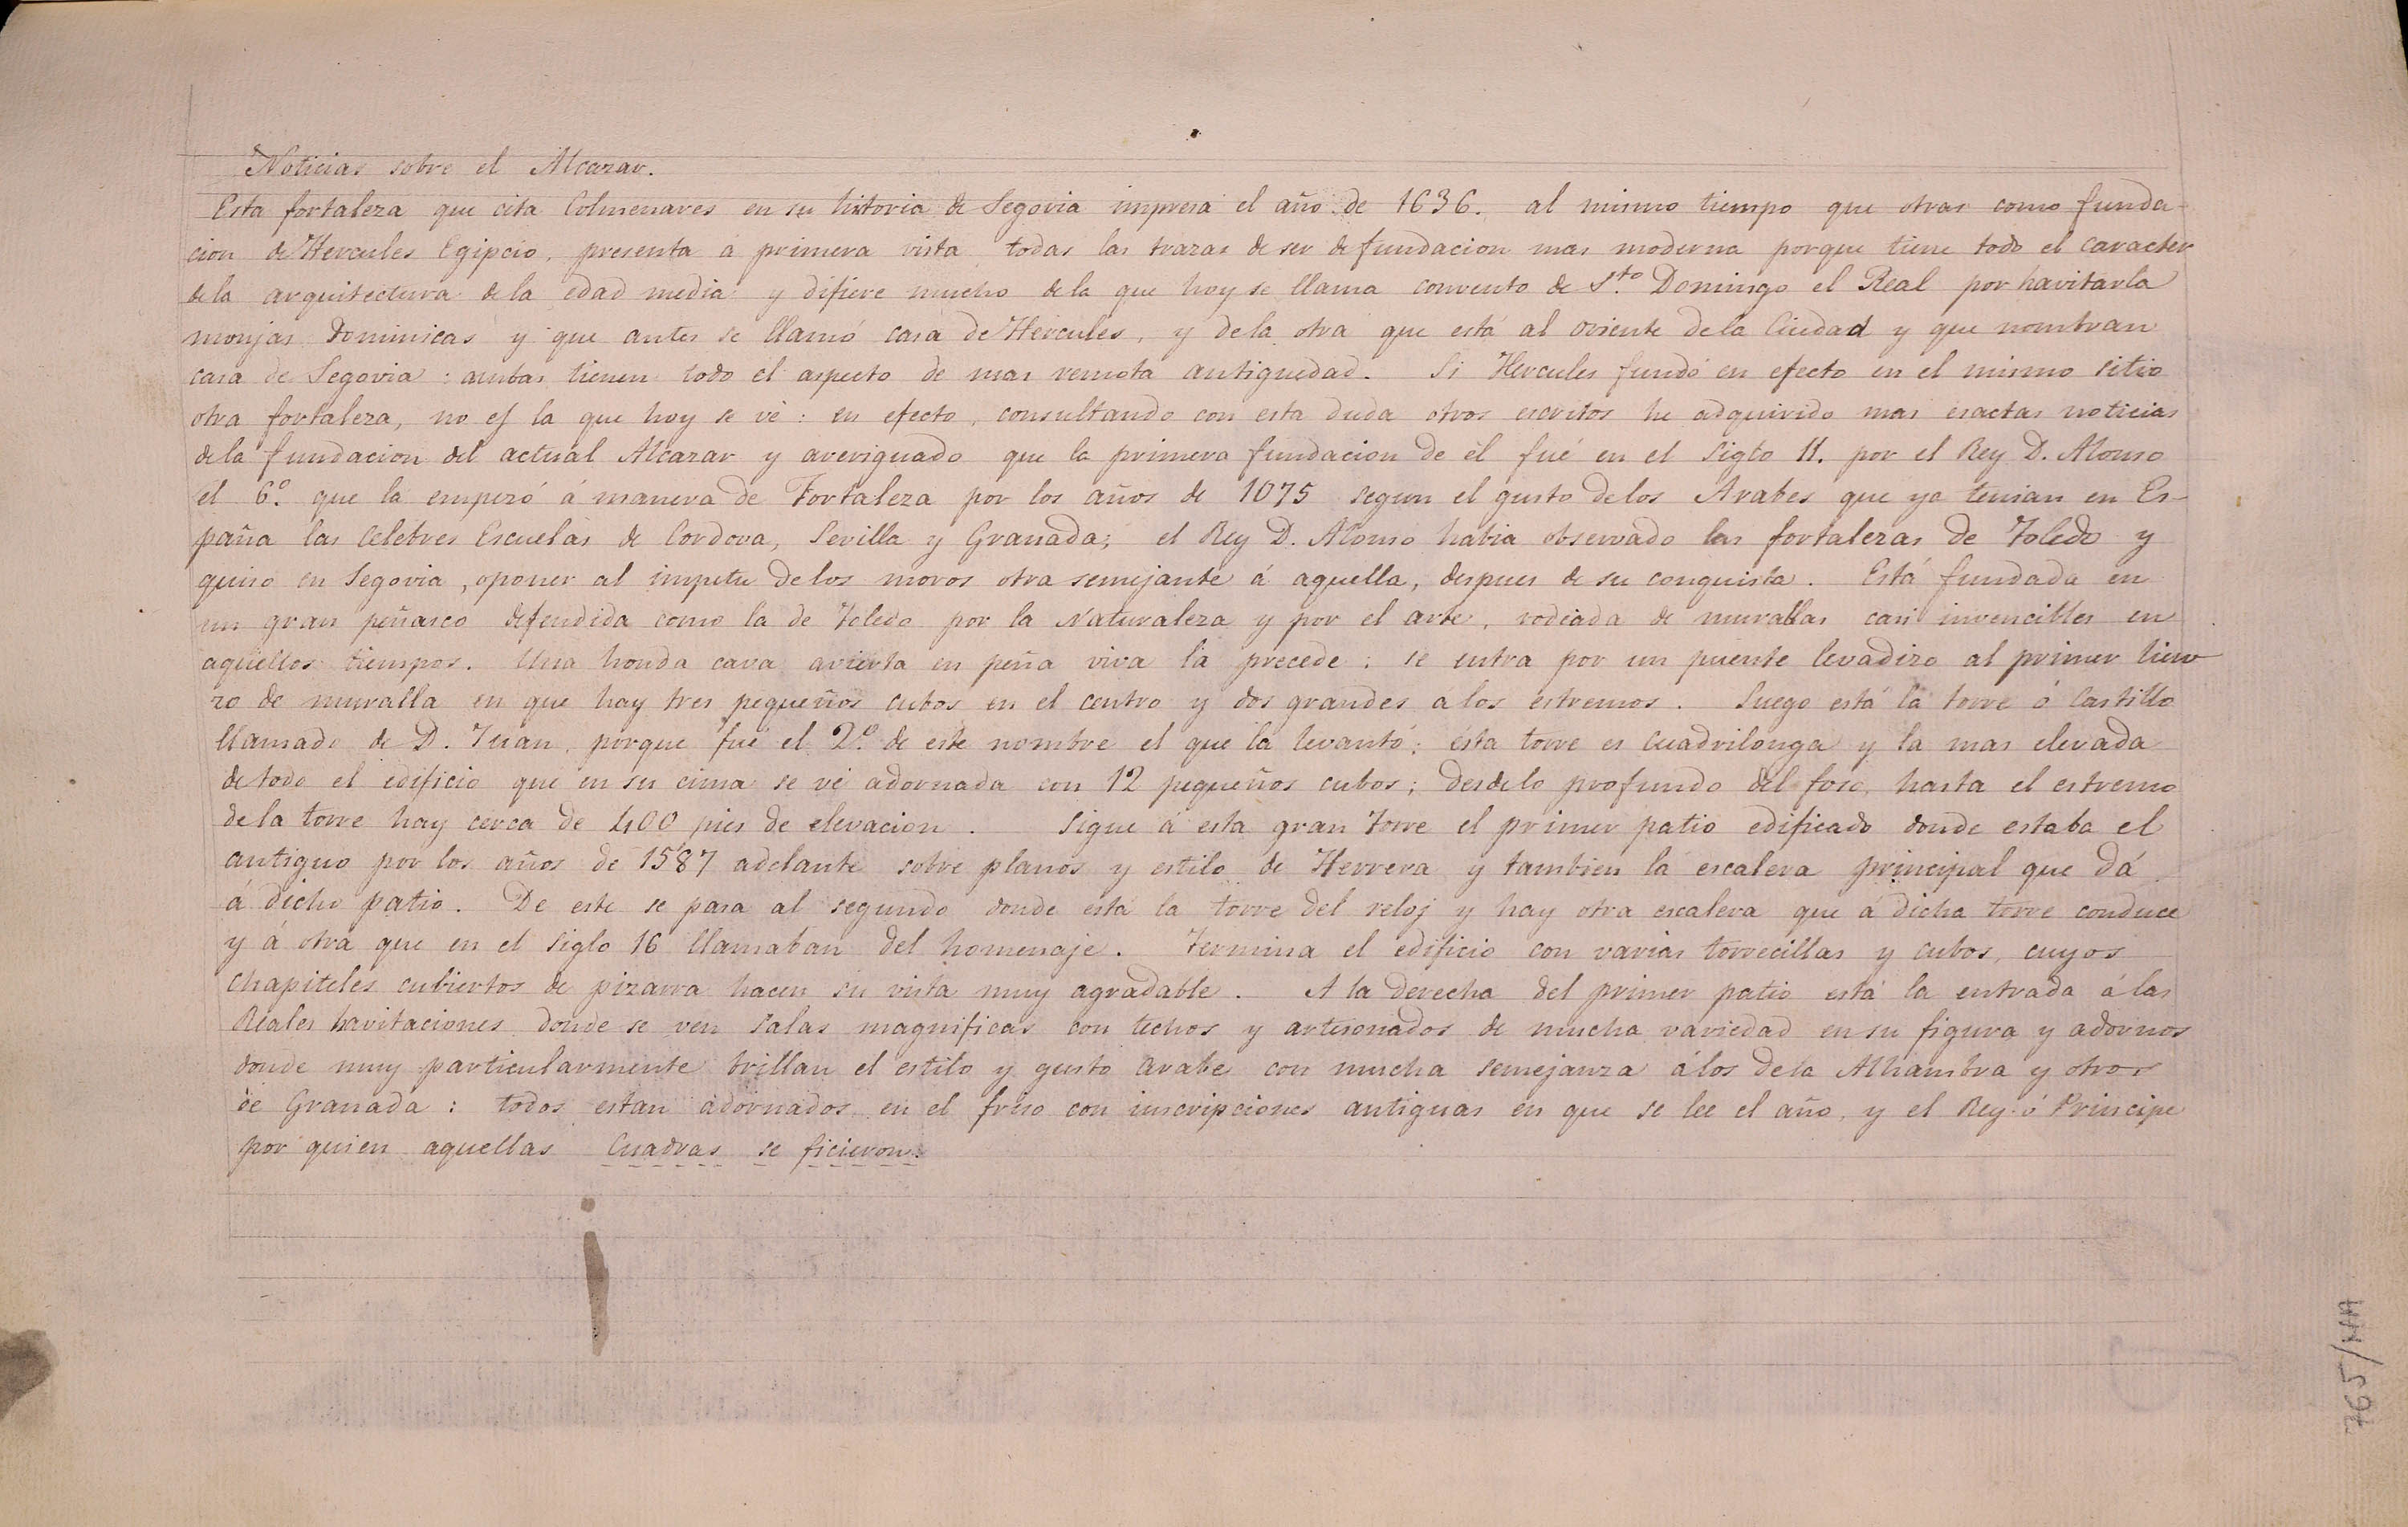 Noticias sobre el Alcazar.
Esta fortaleza que cita Colmenares en su historia de Segovia impresa el año de 1636. al mismo tiempo que otras como funda-
cion de Hercules Egipcio, presenta á primera vista todas las trazas de ser de fundacion mas moderna porque tiene todo el caracter
de la arquitectura de la edad media y difiere mucho de la que hoy se llama convento de S.to Domingo el Real por havitarla
monjas Dominicas y que antes se llamó casa de Hercules, y de la otra que está al oriente de la Ciudad y que nombran
casa de Segovia: ambas tienen todo el aspecto de mas remota antiguedad. Si Hercules fundó en efecto en el mismo sitio
otra fortaleza, no es la que hoy se vé: en efecto, consultando con esta duda otros escritos he adquirido mas esactas noticias
de la fundacion del actual Alcazar y averiguado que la primera fundacion de él fué en el siglo 11. por el Rey D. Alonso
el 6.º que la empezó á manera de Fortaleza por los años de 1075 segun el gusto de los Arabes que ya tenian en Es-
paña las celebres Escuelas de Cordova, Sevilla y Granada; el Rey D. Alonso habia observado las fortalezas de Toledo y
quiso en Segovia, oponer al impetu de los moros otra semejante á aquella, despues de su conquista. Está fundada en
un gran peñasco defendida como la de Toledo por la Naturaleza y por el arte, rodeada de murallas casi invencibles en
aquellos tiempos. Una honda cava avierta en peña viva la precede: se entra por un puente levadizo al primer lien-
zo de muralla en que hay tres pequeños cubos en el centro y dos grandes a los estremos. Luego está la torre ó Castillo
llamado de D. Juan, porque fué el 2.º de este nombre el que la levantó; esta torre es cuadrilonga y la mas elevada
de todo el edificio que en su cima se vé adornada con 12 pequeños cubos; desde lo profundo del foso, hasta el estremo
de la torre hay cerca de 400 pies de elevacion. Sigue á esta gran torre el primer patio edificado donde estaba el
antiguo por los años de 1587 adelante sobre planos y estilo de Herrera y tambien la escalera principal que dá
á dicho patio. De este se pasa al segundo donde está la torre del reloj y hay otra escalera que á dicha torre conduce
y á otra que en el siglo 16 llamaban del homenaje. Termina el edificio con varias torrecillas y cubos, cuyos
chapiteles cubiertos de pizarra hacen su vista muy agradable. A la derecha del primer patio está la entrada á las
Reales havitaciones donde se ven salas magnificas con techos y artesonados de mucha variedad en su figura y adornos
donde muy particularmente brillan el estilo y gusto arabe con mucha semejanza á los de la Alhambra y otros
de Granada: todos estan adornados en el friso con inscripciones antiguas en que se lee el año, y el Rey ó Principe
por quien aquellas Cuadras se ficieron.